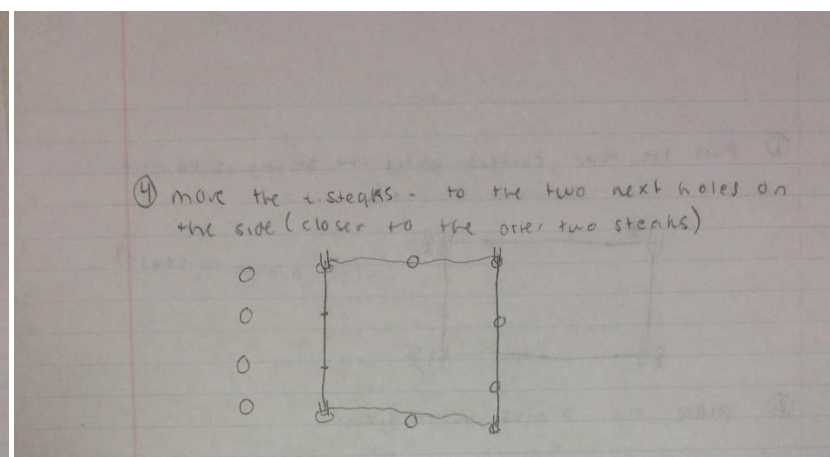 ④ move the t steaks - to the two next holes on
the side (closer to the other two steaks)